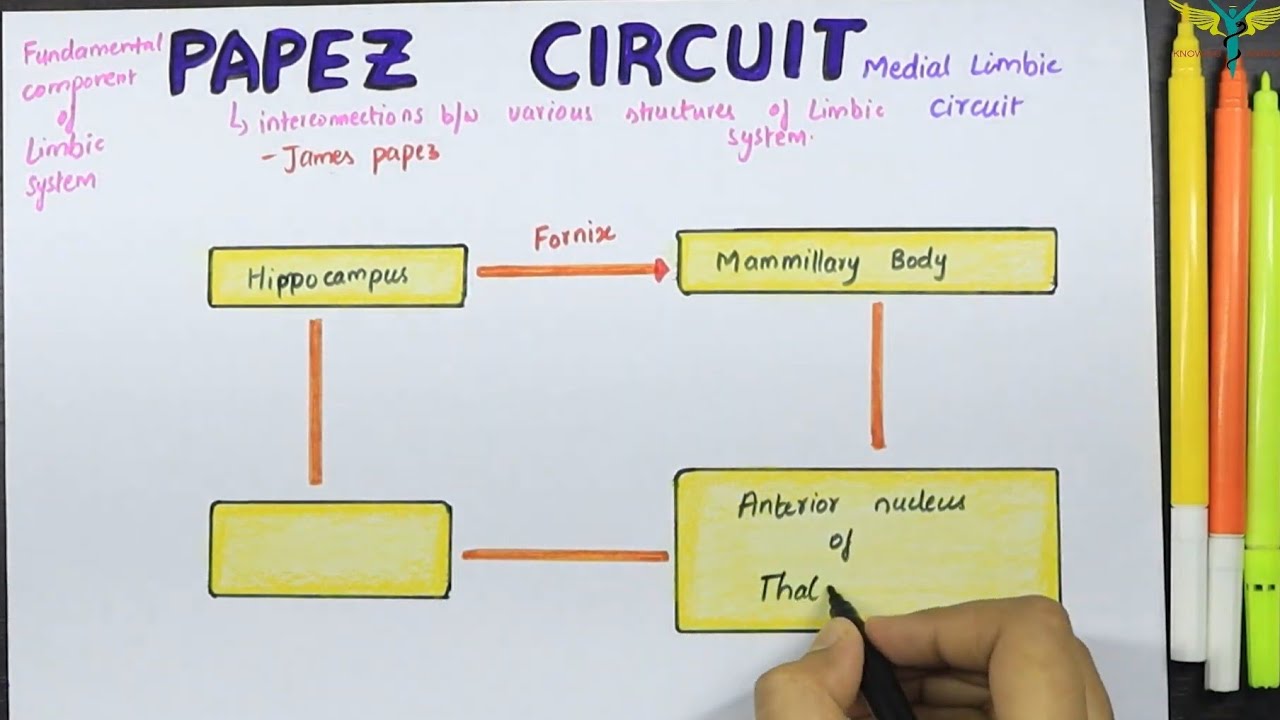 PAPEZ CIRCUIT
Fundamental
component
of
Limbic
system
Medial Limbic
circuit
↳ interconnections b/w various structures of Limbic
system.
- James papez
Hippocampus
Fornix
Mammillary Body
Anterior nucleus
of
Thal